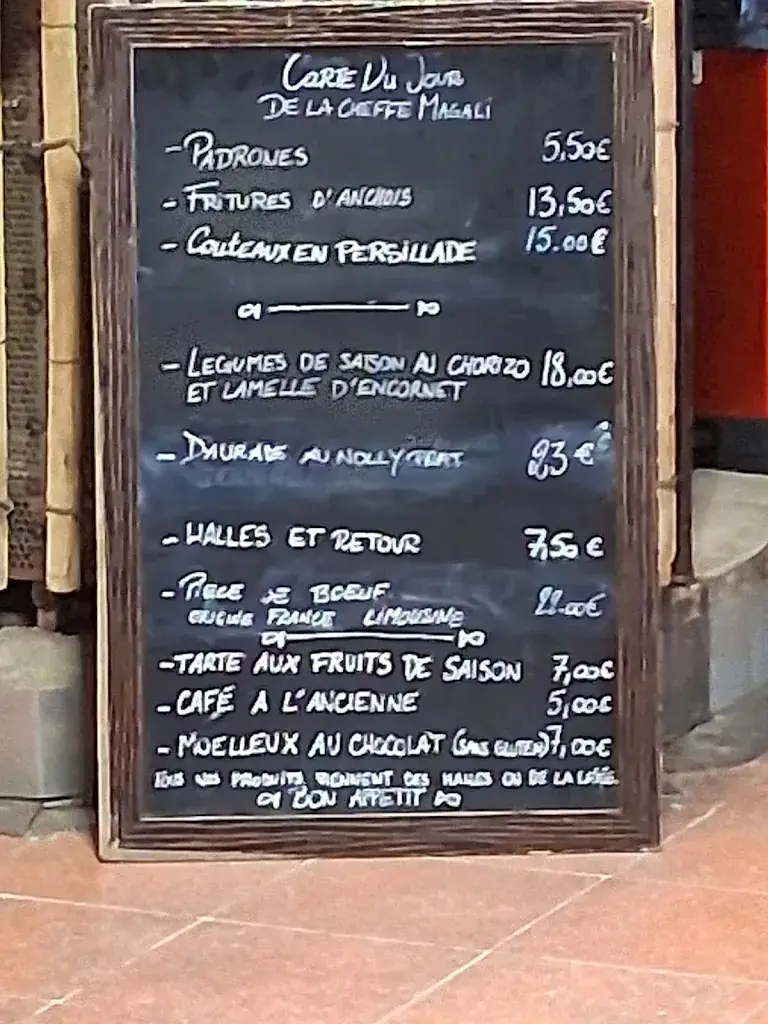 CARTE DU JOUR
DE LA CHEFFE MAGALI
- PADRONES 5,50€
- FRITURES D'ANCHOIS 13,50€
- COUTEAUX EN PERSILLADE 15.00€
- LEGUMES DE SAISON AU CHORIZO 18,00€
ET LAMELLE D'ENCORNET
- DAURADE AU NOLLY PRAT 23€
- HALLES ET RETOUR 7,50€
- PIECE DE BOEUF 22.00€
ORIGINE FRANCE LIMOUSINE
- TARTE AUX FRUITS DE SAISON 7,00€
- CAFÉ A L'ANCIENNE 5,00€
- MOELLEUX AU CHOCOLAT (SANS GLUTEN) 7,00€
TOUS NOS PRODUITS VIENNENT DES HALLES OU DE LA
BON APPETIT